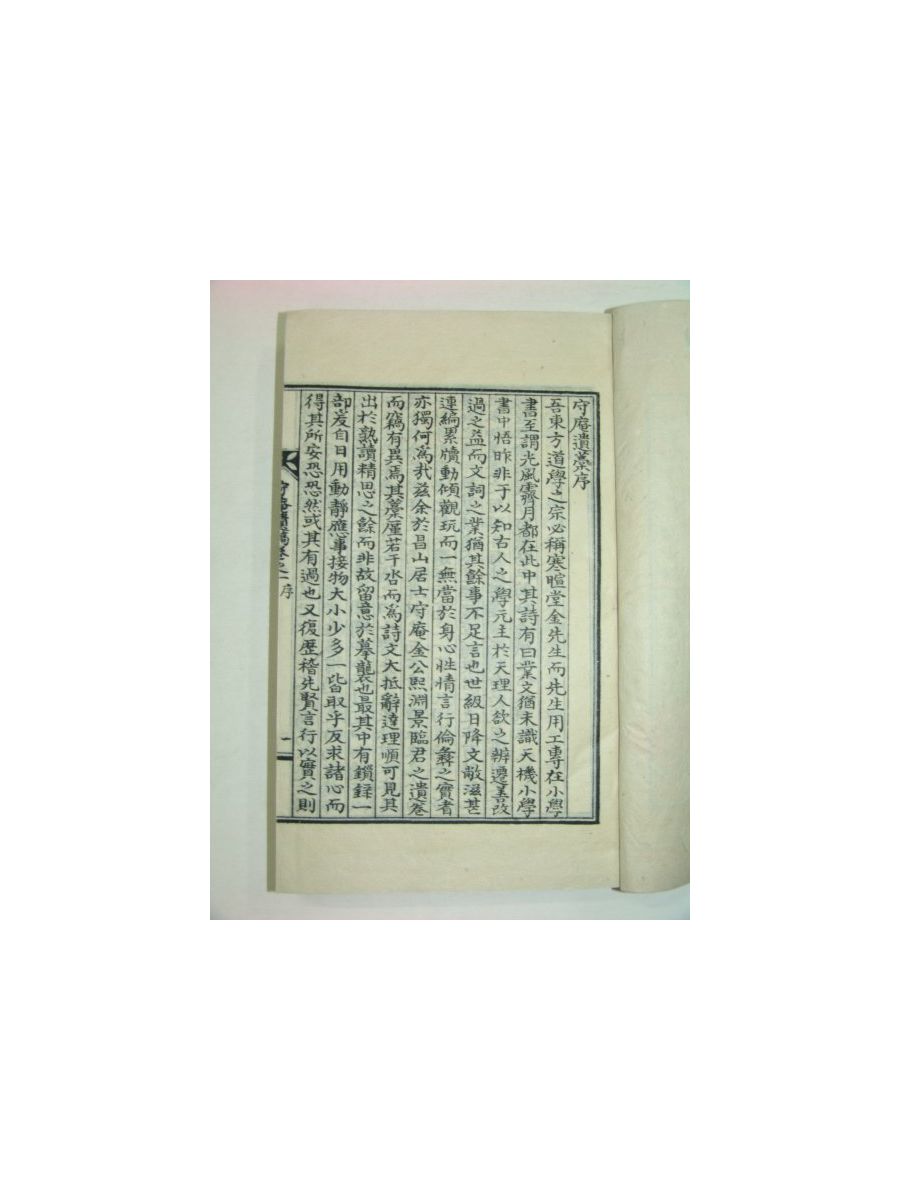 守庵遺藁序
吾東方道學之宗必稱寒暄堂金先生而先生用工專在小學
書至謂光風霽月都在此中其詩有曰業文猶未識天機小學
書中悟昨非于以知古人之學元主於天理人欲之辨遷善改
過之益而文詞之業猶其餘事不足言也世級日降文敝滋甚
連編累牘動傾觀玩而一無當於身心性情言行倫彝之實者
亦獨何爲哉玆余於昌山居士守庵金公熙淵景臨君之遺卷
而竊有異焉其藁厪若干沓而爲詩文大抵辭達理順可見其
出於熟讀精思之餘而非故留意於摹襲也最其中有鎖錄一
部爰自日用動靜應事接物大小少多一皆取乎反求諸心而
得其所安恐恐然或其有過也又復歷稽先賢言行以實之則
守庵遺稿卷之一 序
一